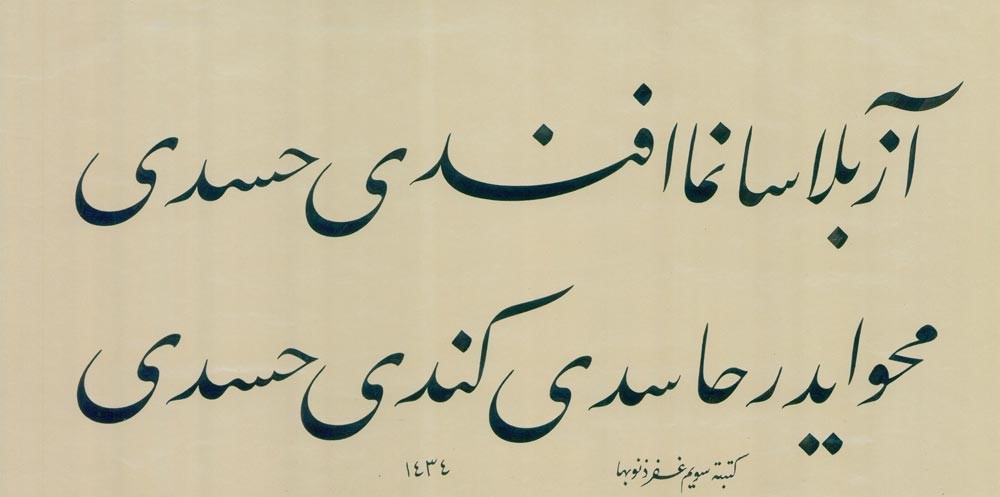 آز بلا سانما افندی حسدی
محو ایدر حاسدی کندی حسدی
كتبته سویم غفر ذنوبها ١٤٣٤